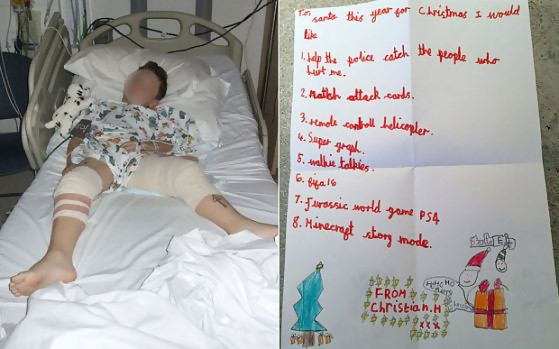 To santa this year for Christmas I would
like
1. help the police catch the people who
hurt me.
2. Match attack cards.
3. remote controll helicopter.
4. Super graph.
5. walkie talkies.
6. fifa 16
7. Jurassic world game PS4
8. Minecraft story mode.
HoHoHo
FROM
Christian.H
xxx